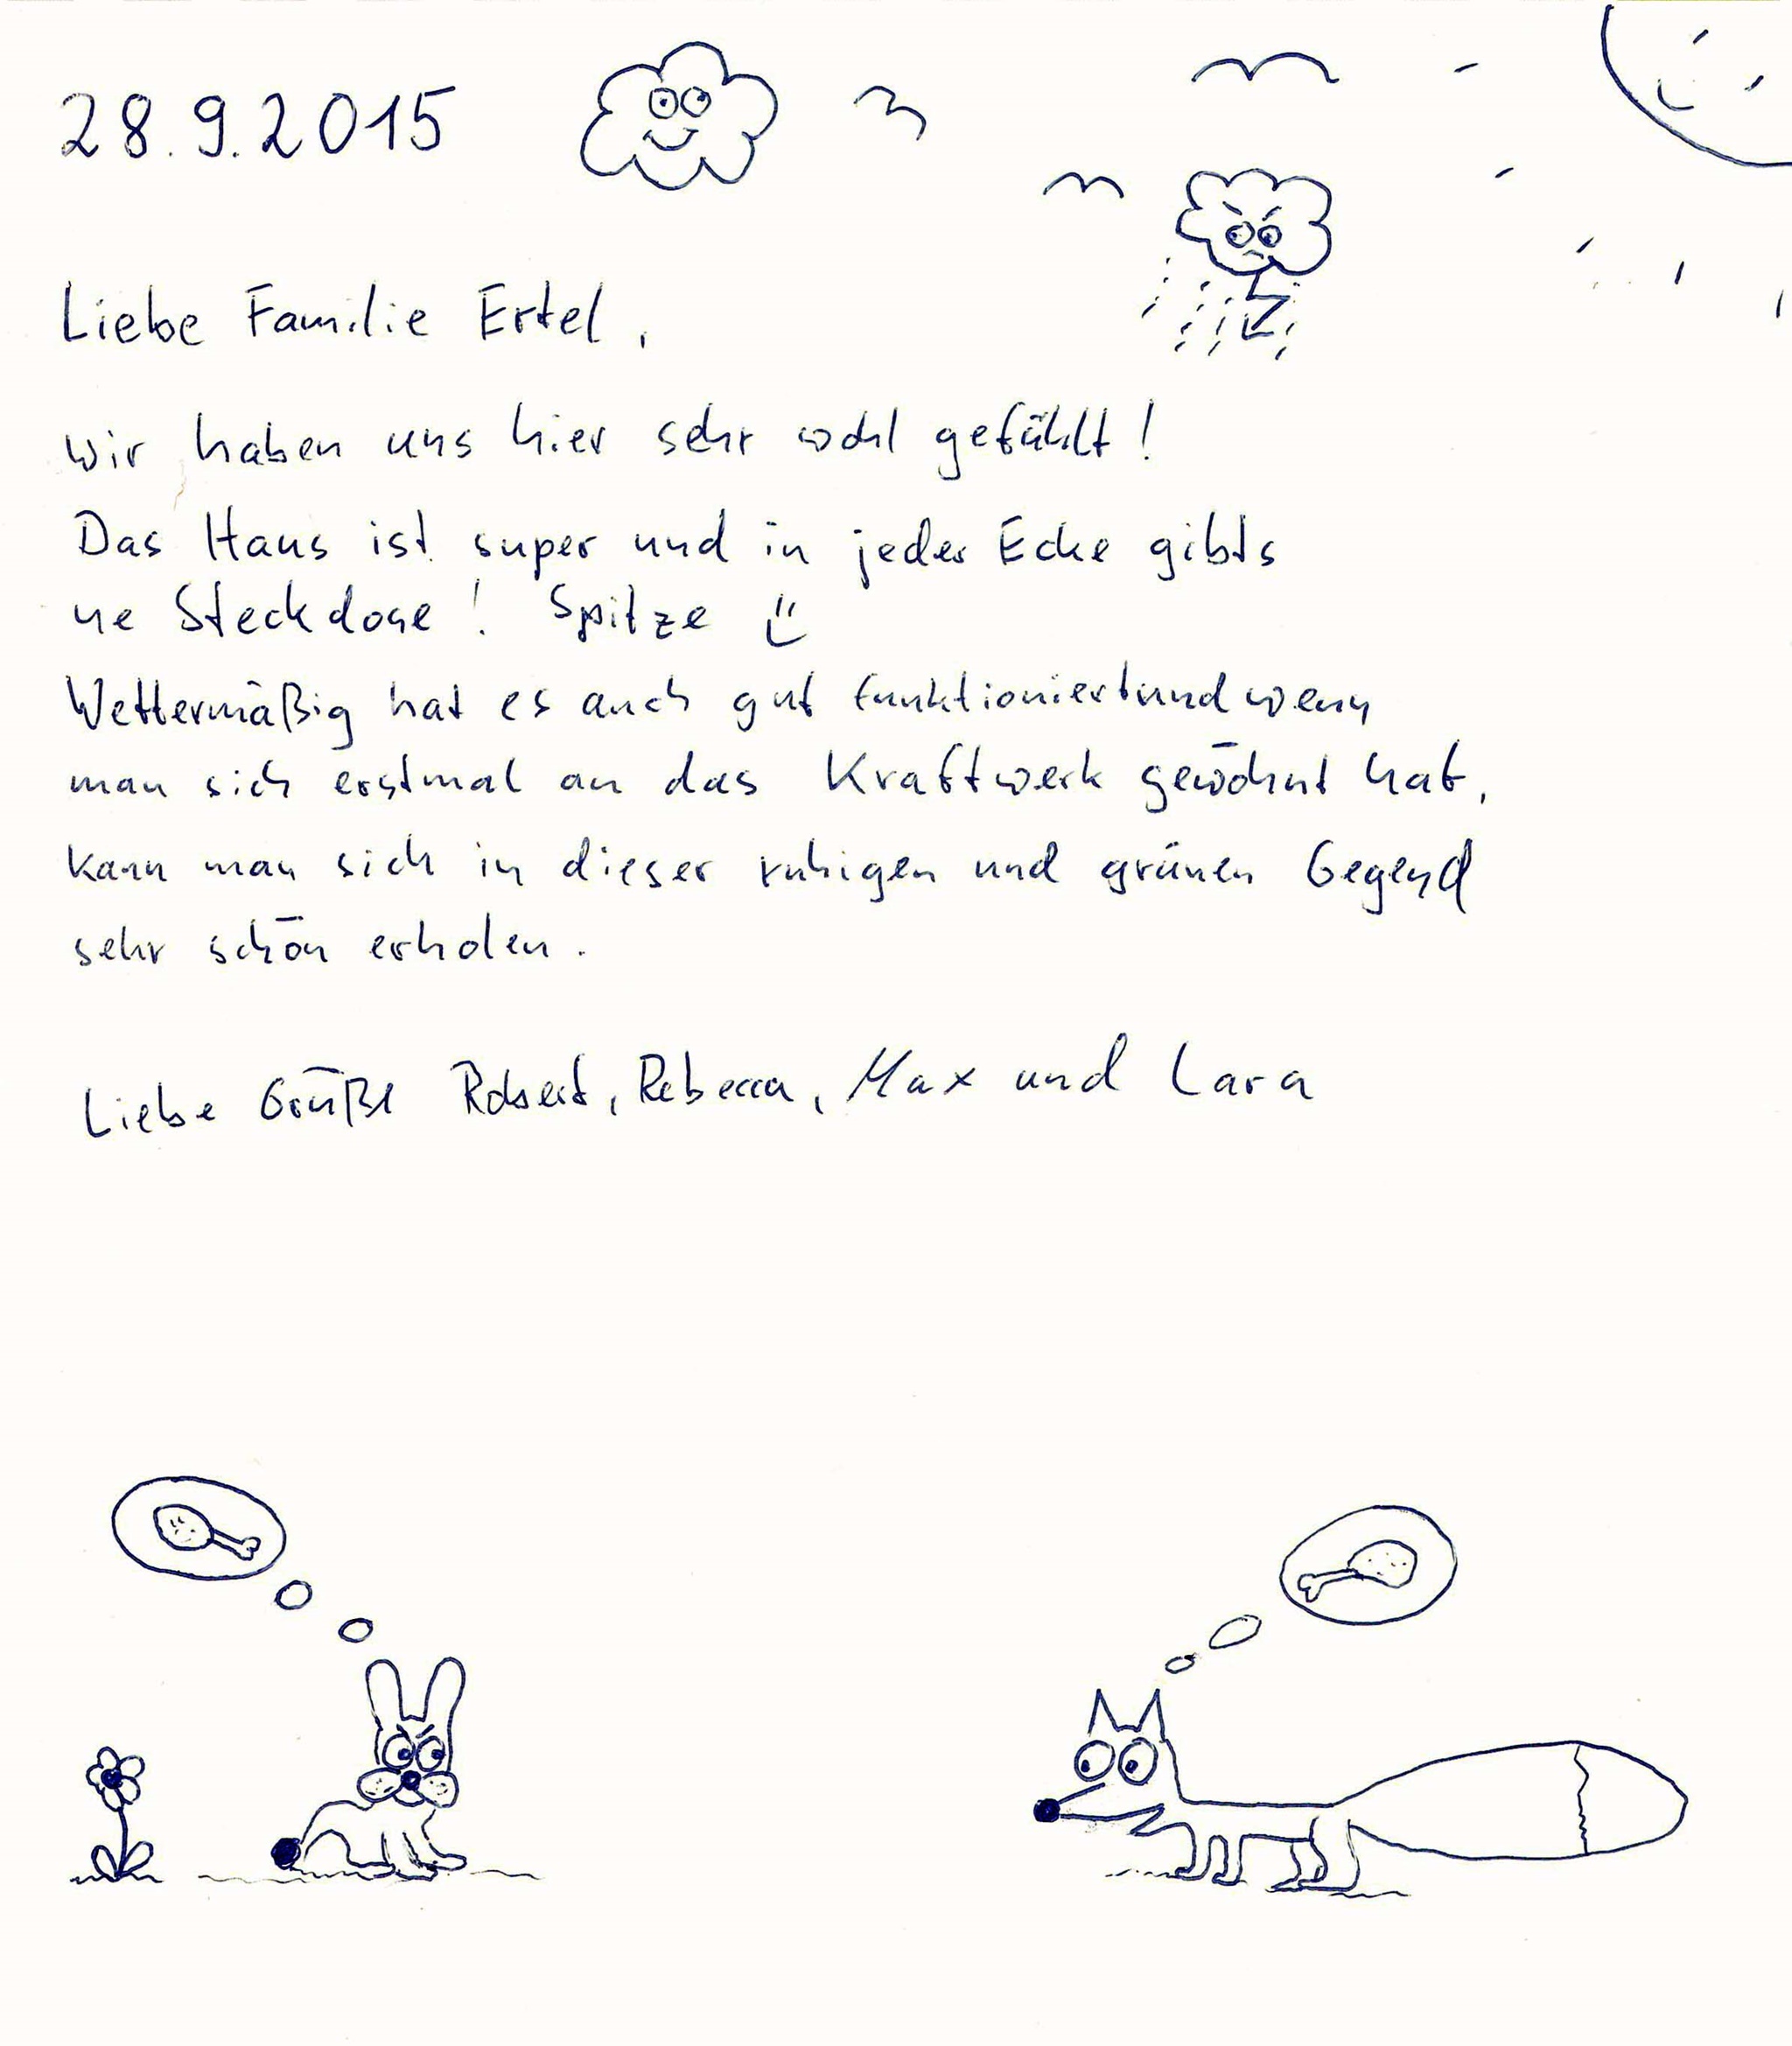 28.9.2015
Liebe Familie Ertel,
wir haben uns hier sehr wohl gefühlt!
Das Haus ist super und in jeder Ecke gibts
ne Steckdose! Spitze
Wettermäßig hat es auch gut funktioniert und wenn
man sich erstmal an das Kraftwerk gewöhnt hat,
kann man sich in dieser ruhigen und grünen Gegend
sehr schön erholen.
Liebe Grüße Robert, Rebecca, Max und Lara